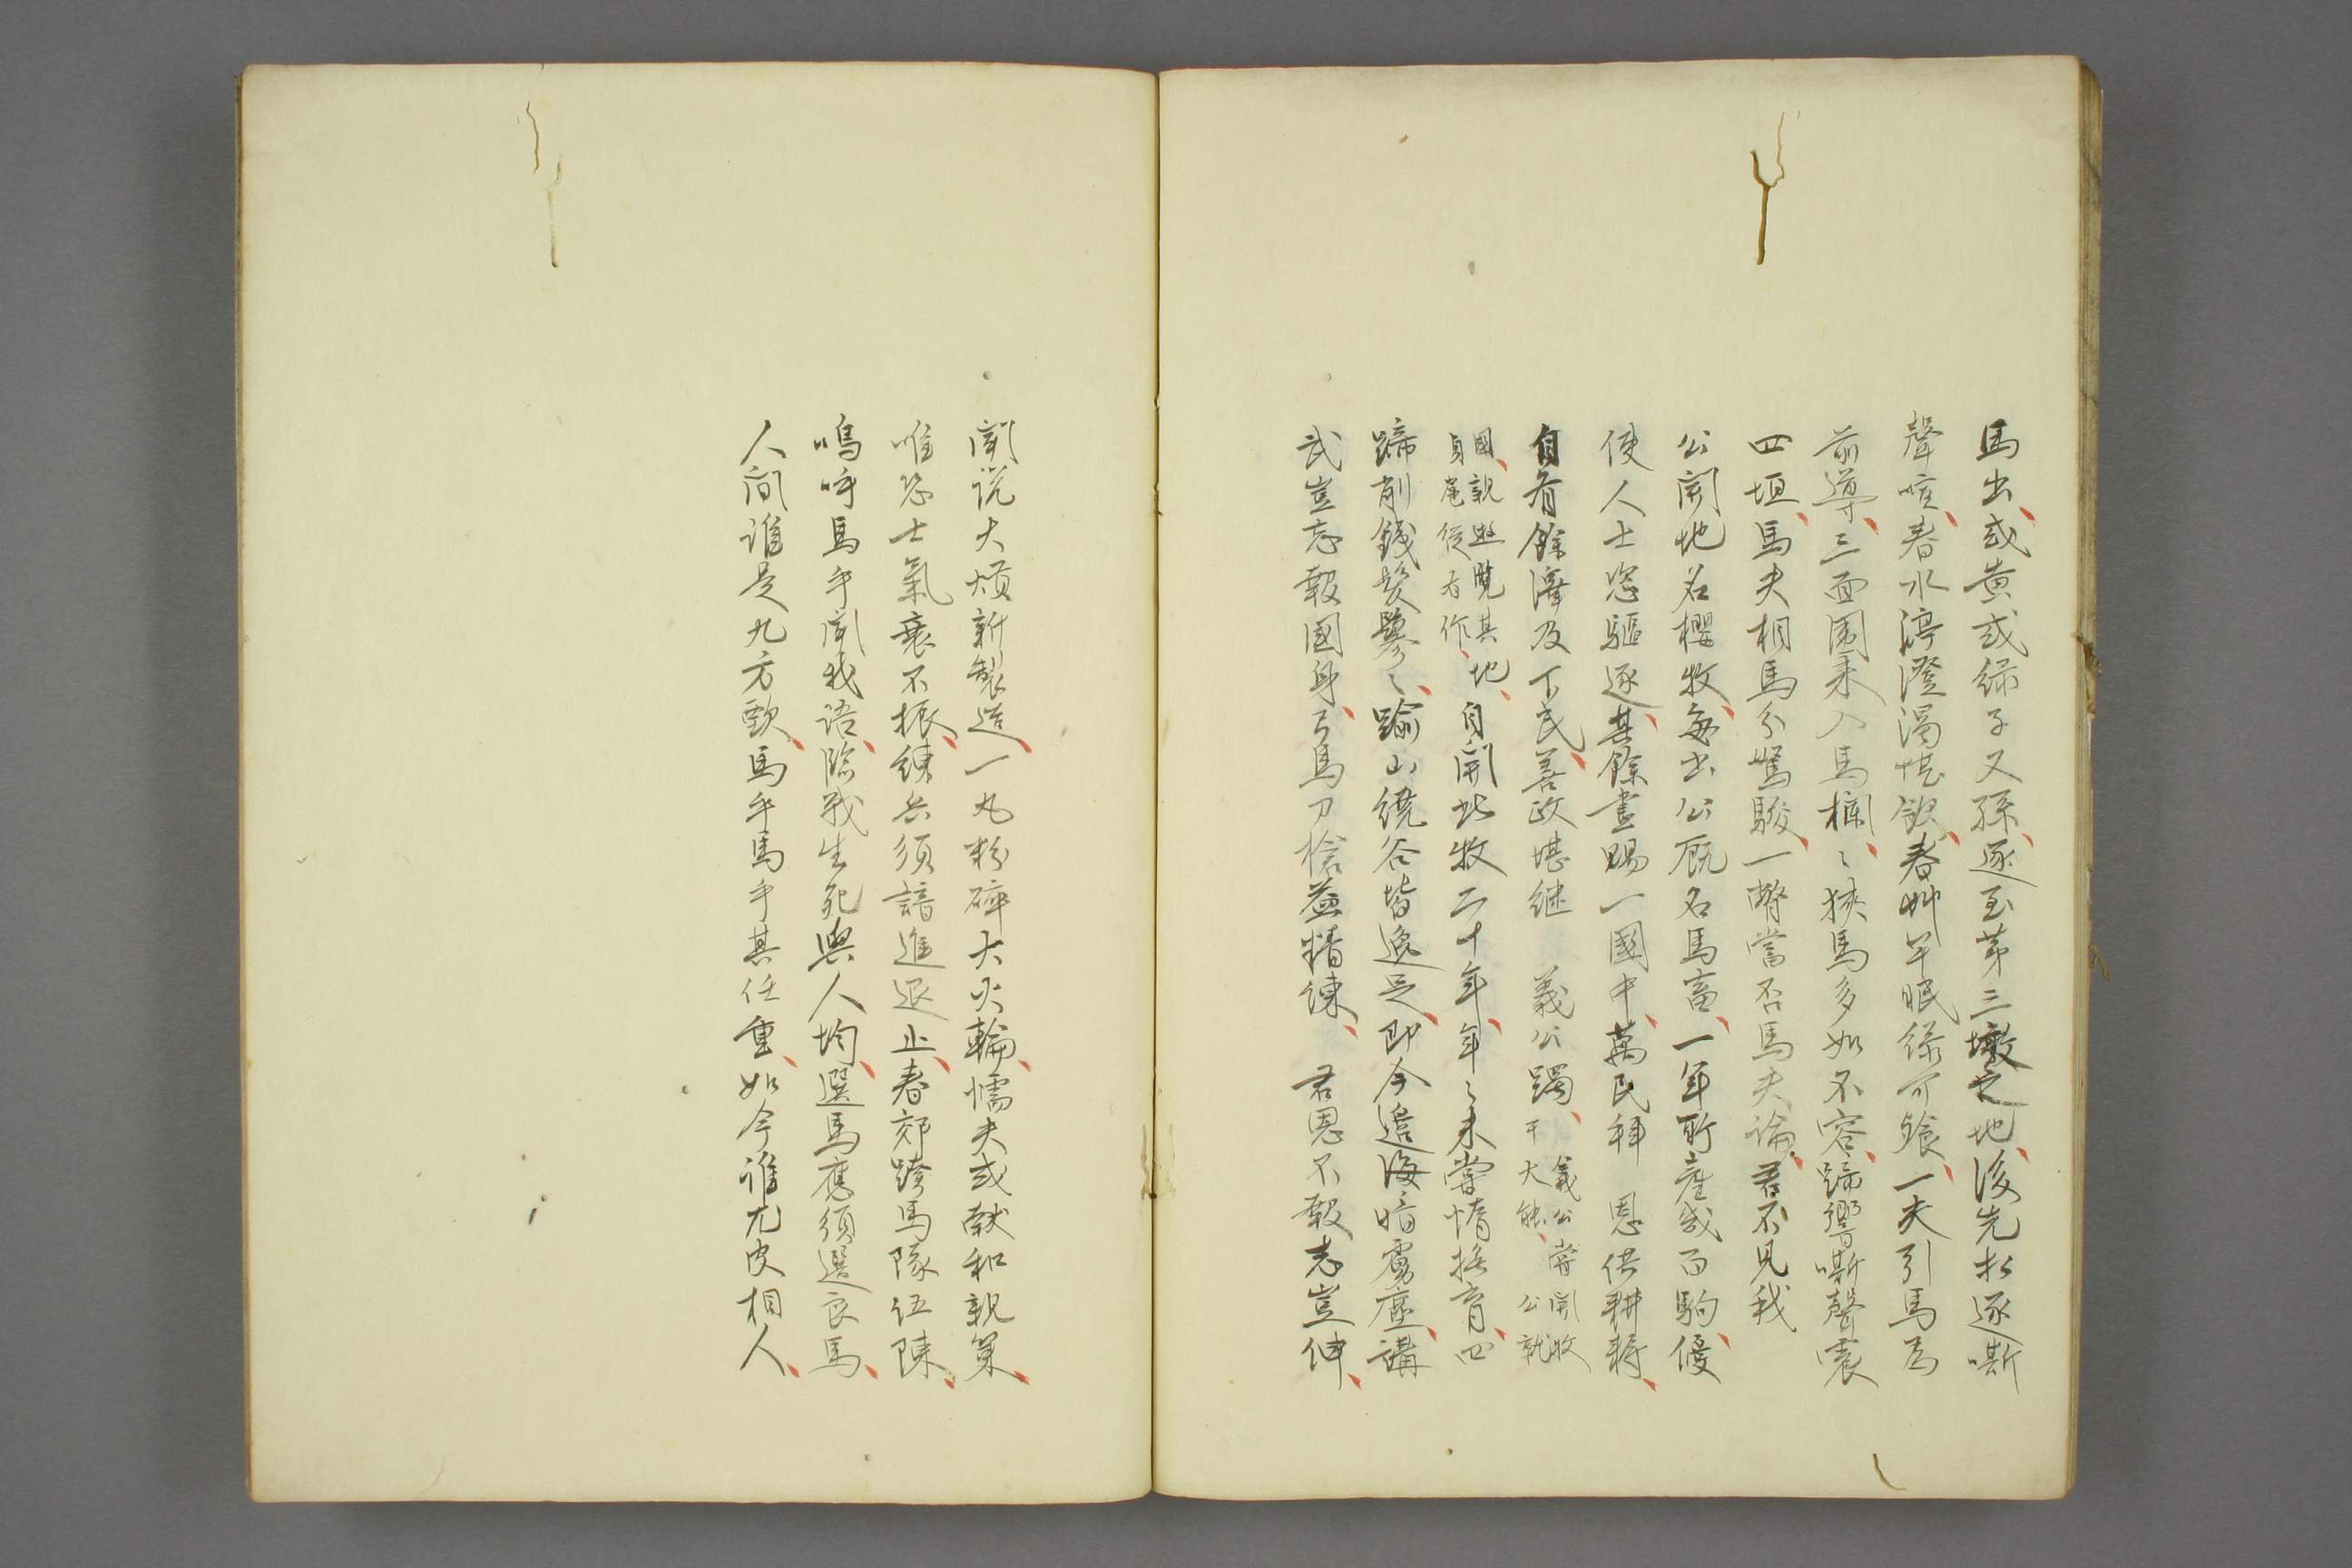 馬出或黄或緑子又孫逐至第三墩之地後先相逐嘶
聲喧春水渟澄濁堪飲春艸芊眠緑可飱一夫引馬為
前導三面圍来入馬欄〻狹馬多如不容蹄響嘶聲震
四垣馬夫相馬分駑駿一瞥當否馬夫論君不見我
公開地名櫻牧每出公厩名馬畜一年所產或百駒優
使人士恣驅逐其餘盡賜一國中萬民拜　恩供耕耨
自有餘澤及下民善政堪継　義公躅義公嘗開牧于大能公就
國親遊覧其地貞㞍従有作自開此牧二十年年〻未嘗惰撫育四
蹄削鐵髮鬖〻踰山繞谷皆逸足即今邊海暗虜塵講
武豈忘報國身弓馬刀槍益精練　君恩不報志豈伸
聞説大熕新製造一丸粉碎大火輪懦夫或献和親策
唯恐士氣衰不振練兵須諳進退止春郊跨馬隊伍陳
嗚呼馬乎聞我語臨戦生死與人均選馬應須選良馬
人間誰是九方歅馬乎馬乎其任重如今誰尤皮相人